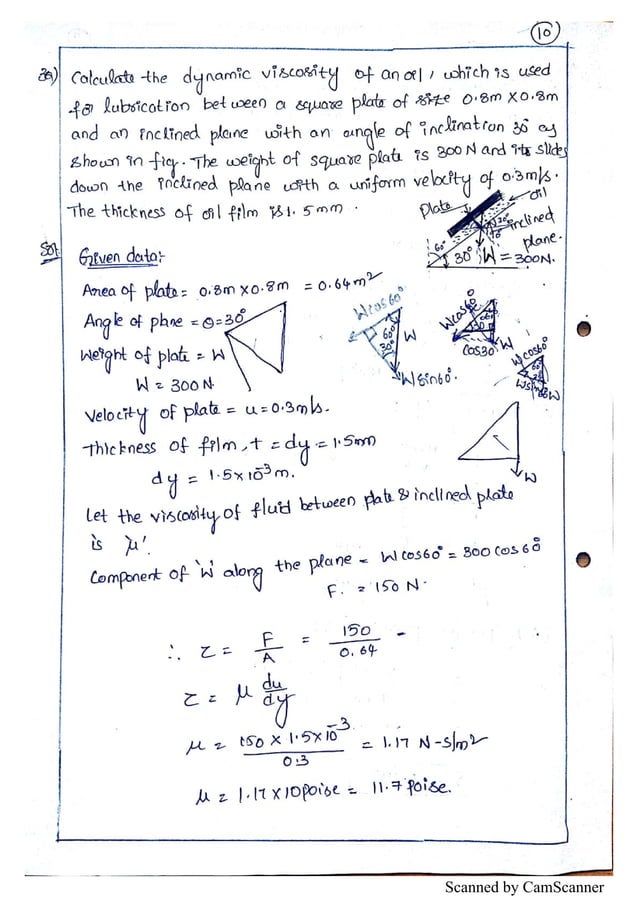 10
3a) Calculate the dynamic viscosity of an oil, which is used
for lubrication between a square plate of size 0.8m X 0.8m
and an inclined plane with an angle of inclination 30° as
shown in fig. The weight of square plate is 300 N and its slides
down the inclined plane with a uniform velocity of 0.3 m/s.
The thickness of oil film is 1.5 mm.
Plate
oil
inclined
plane.
60°
30°
W = 300N.
Sol Given data:-
Area of plate = 0.8m X 0.8m = 0.64 m²
Angle of plane = θ = 30°
Weight of plate = W
W = 300 N
Wcos60°
60°
30°
W
Wsin60°.
Wcos60°
60°
30
cos30°
W
Wcos60°
60°
W
Velocity of plate = u = 0.3 m/s.
Thickness of film, t = dy = 1.5mm
dy = 1.5 x 10⁻³ m.
W
Let the viscosity of fluid between plate & inclined plate
is 'μ'.
Component of 'W' along the plane = W cos60° = 300 cos 60°
F. = 150 N.
∴ τ = F/A = 150/0.64
τ = μ du/dy
μ = 150 X 1.5 X 10⁻³/0.3 = 1.17 N-S/m²
μ = 1.17 X 10 poise = 11.7 poise.
Scanned by CamScanner